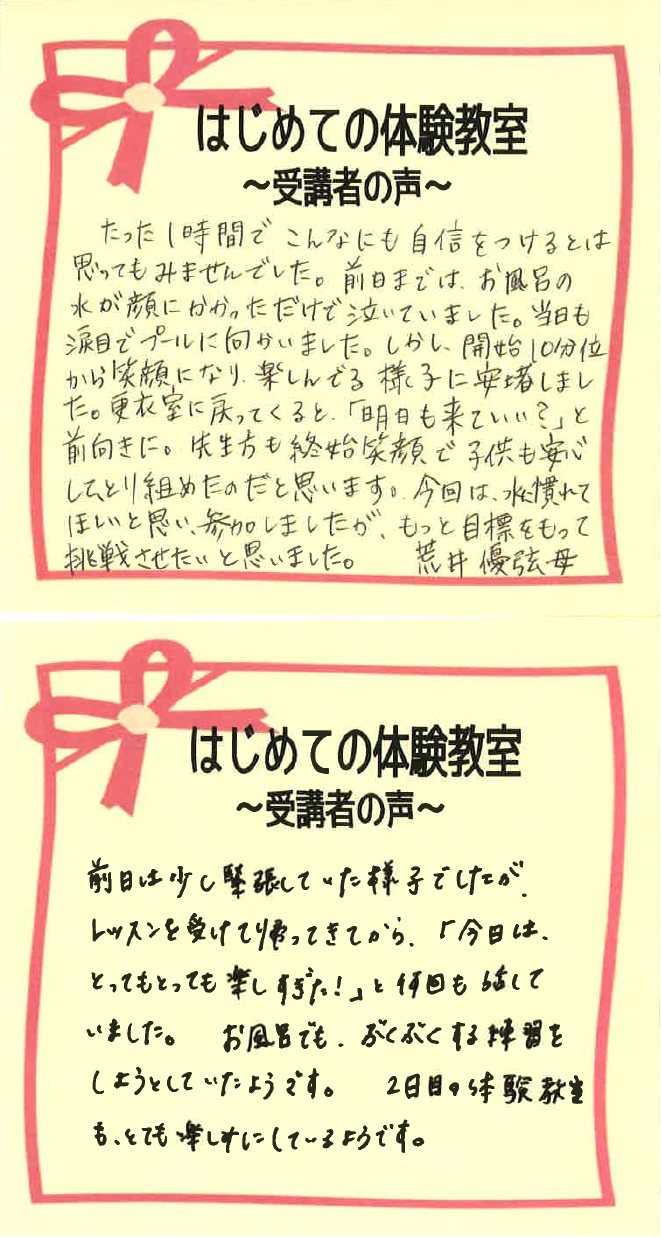 はじめての体験教室
～受講者の声～
たった1時間で こんなにも 自信をつけるとは
思ってもみませんでした。前日までは、お風呂の
水が顔にかかっただけで泣いていました。当日も
涙目でプールに向かいました。しかし、開始10分位
から笑顔になり、楽しんでる 様子に安堵しまし
た。更衣室に戻ってくると、「明日も来ていい？」と
前向きに。先生方も終始笑顔で子供も安心
してとり組めたのだと思います。今回は、水慣れて
ほしいと思い、参加しましたが、もっと目標をもって
挑戦させたいと思いました。 荒井優弦母
はじめての体験教室
～受講者の声～
前日は少し緊張していた様子でしたが、
レッスンを受けて帰ってきてから、「今日は、
とってもとっても楽しすぎた！」と何回も話して
いました。 お風呂でも、ぶくぶくする練習を
しようとしていたようです。 2日目の体験教室
も、とても楽しみにしているようです。